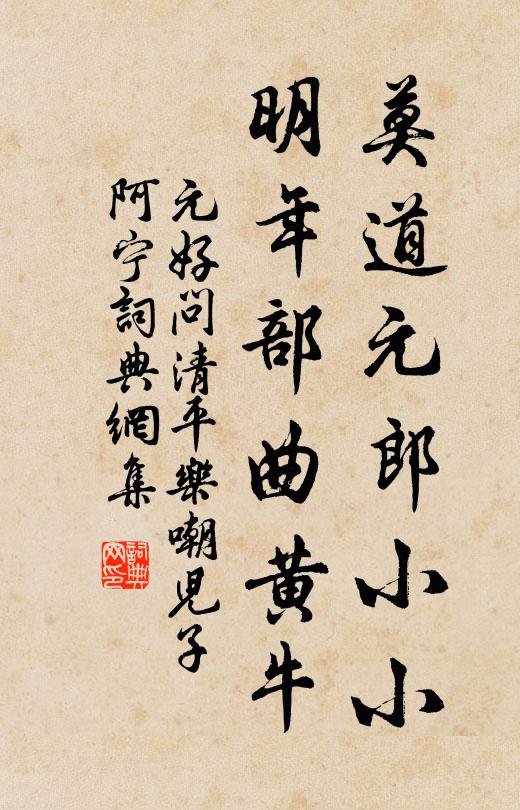 莫道元郎小小
明年部曲黄牛
元好问清平樂嘲児子
阿宁詞典網集
詞典网印